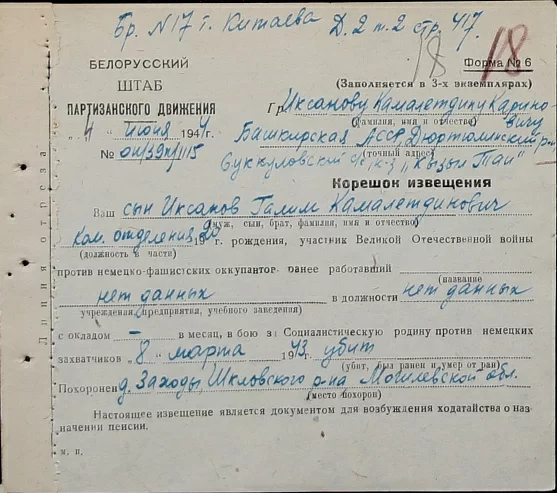 Бр. N 17 т. Китаева Д. 2 п. 2 стр. 417.
18 18
БЕЛОРУССКИЙ
ШТАБ
ПАРТИЗАНСКОГО ДВИЖЕНИЯ
„4" июня 1944 г.
№
Форма № 6
(Заполняется в 3-х экземплярах)
Гр. Иксанову Камалетдину Каримо-
вичу
(фамилия, имя и отчество)
Башкирская АССР, Дюртюлинский р-н
(точный адрес)
Суккуловский с/с к-з „Кызыл Тан"
Корешок извещения
Ваш сын Иксанов Галим Камалетдинович
(муж, сын, брат, фамилия, имя и отчество)
Ком. отделения 1920 г. рождения, участник Великой Отечественной войны
(должность в части)
против немецко-фашистских оккупантов ранее работавший
(название
нет данных в должности нет данных
учреждения, предприятия, учебного заведения)
с окладом — в месяц, в бою за Социалистическую родину против немецких
захватчиков „8" марта 1943 убит
(убит, был ранен и умер от ран)
Похоронен д. Заходы, Шкловского р-на Могилевской обл.
(место похорон)
Настоящее извещение является документом для возбуждения ходатайства о наз
начении пенсии.
м. п.
Линия отреза